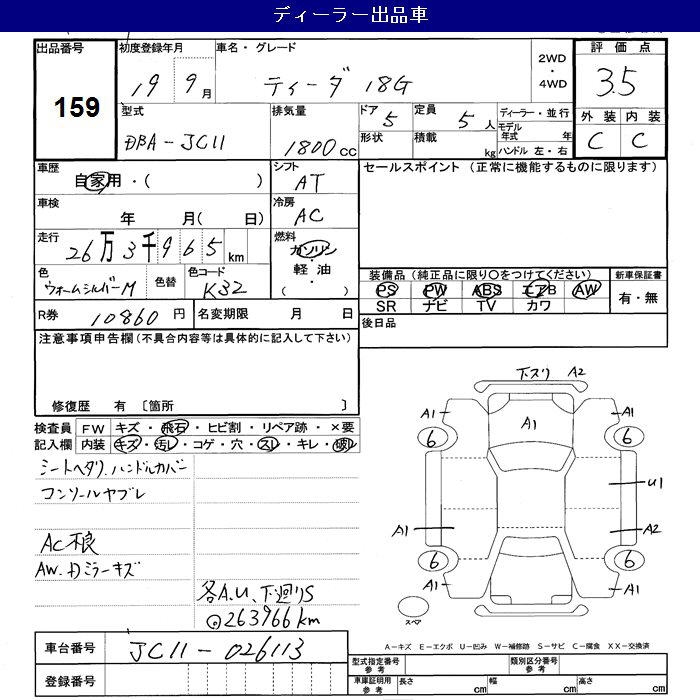 ディーラー出品車
出品番号 159
初度登録年月 19 9月
車名・グレード ティーダ 18G
2WD・4WD
評価点 3.5
外装 C 内装 C
型式 DBA-JC11
排気量 1800cc
ドア 5 形状
定員 5人 積載 kg
ディーラー・並行
モデル年式 年
ハンドル 左・右
車歴 自家用・( )
シフト AT
セールスポイント (正常に機能するものに限ります)
車検 年 月( 日)
冷房 AC
走行 26万3千965km
燃料 ガソリン・軽油・( )
色 ウォームシルバーM 色替 色コード K32
装備品 (純正品に限り○をつけてください)
PS PW ABS エアB AW
SR ナビ TV カワ
新車保証書 有・無
R券 10860円 名変期限 月 日
後日品
注意事項申告欄 (不具合内容等は具体的に記入して下さい)
修復歴 有 〔箇所 〕
検査員記入欄
FW キズ・飛石・ヒビ割・リペア跡・×要
内装 キズ・汚レ・コゲ・穴・スレ・キレ・破レ
シートヘタリ.ハンドルカバー
コンソールヤブレ
AC不良
AW.Dミラーキズ
各A.U、下廻りS
◎263966km
下スリ A2
A1 A1 A1
6 6
U1
A1 A2
6 6
A1 A1
スペア
A−キズ E−エクボ U−凹み W−補修跡 S−サビ C−腐食 XX−交換済
車台番号 JC11-026113
登録番号
型式指定番号参考 類別区分番号参考
車庫証明用参考 長さ cm 幅 cm 高さ cm